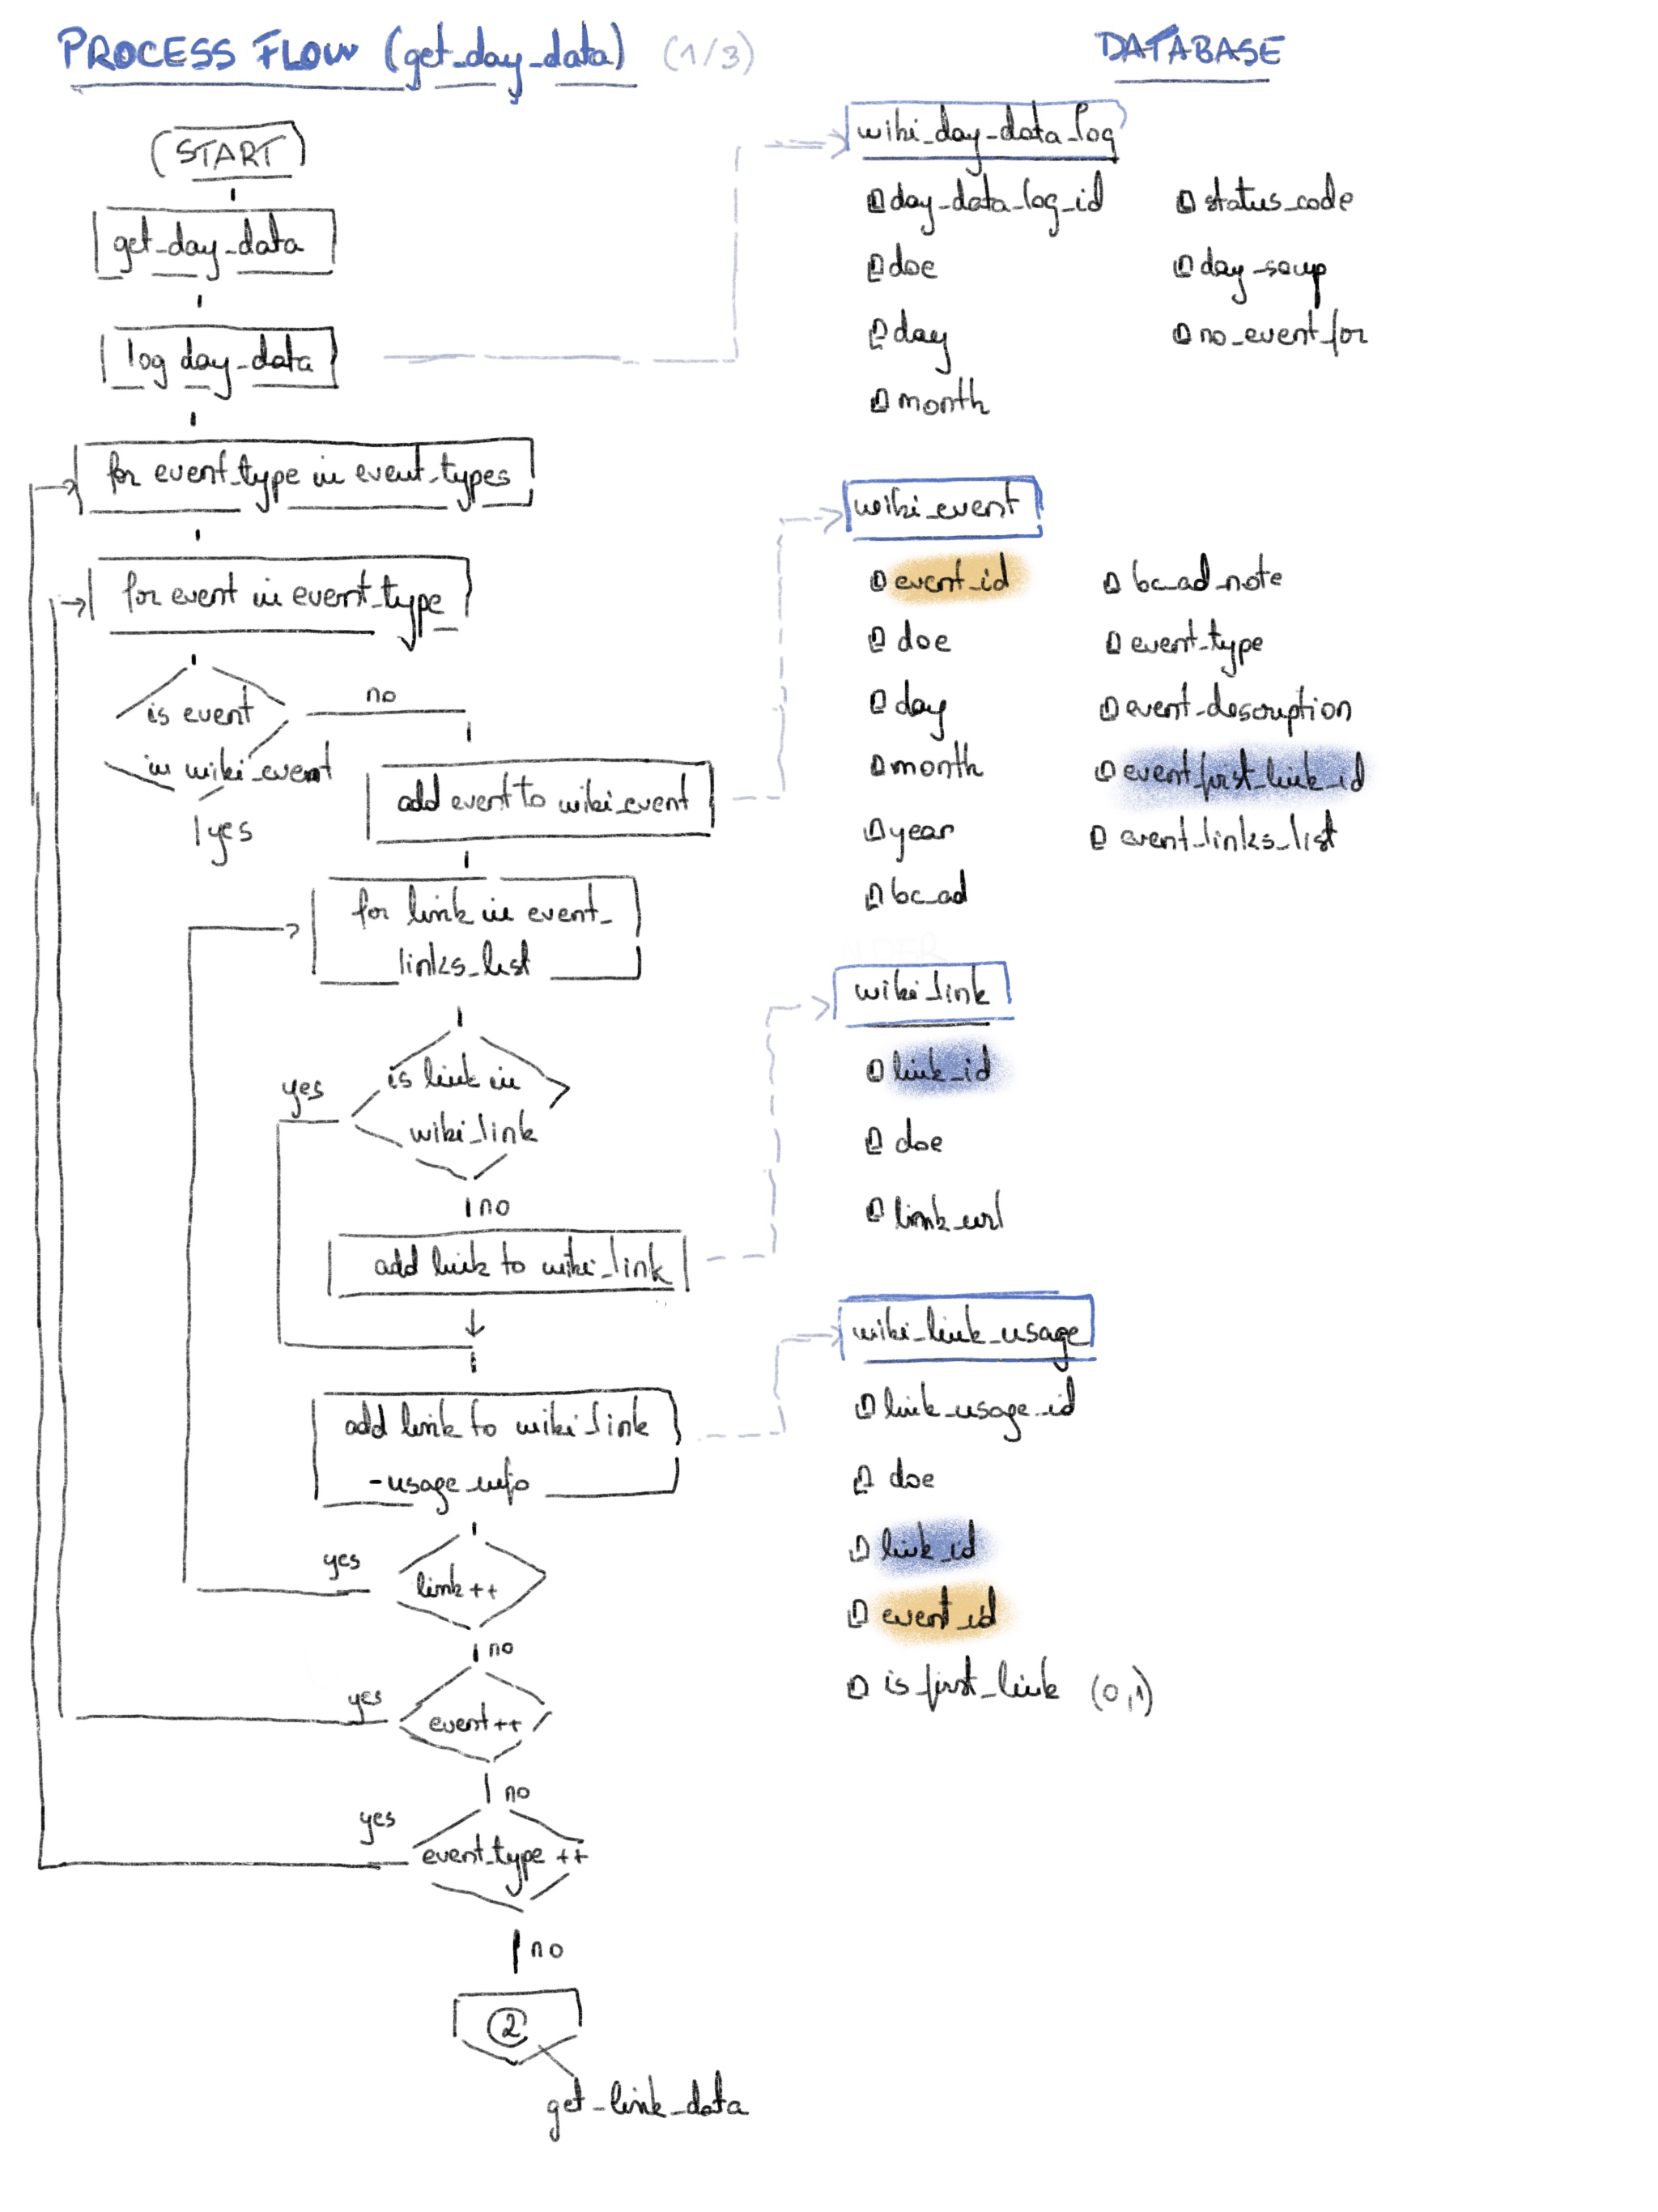 PROCESS FLOW (get_day_data) (1/3)
START
get_day_data
log day_data
for event_type in event_types
for event in event_type
is event
in wiki_event
no
yes
add event to wiki_event
for link in event_
links_list
is link in
wiki_link
yes
no
add link to wiki_link
add link to wiki_link
-usage_info
link++
yes
no
event++
yes
no
event_type ++
yes
no
2
get_link_data
DATABASE
wiki_day_data_log
day_data_log_id
doe
day
month
status_code
day_soup
no_event_for
wiki_event
event_id
doe
day
month
year
bc_ad
bc_ad_note
event_type
event_description
event_first_link_id
event_links_list
wiki_link
link_id
doe
link_url
wiki_link_usage
link_usage_id
doe
link_id
event_id
is_first_link (0,1)